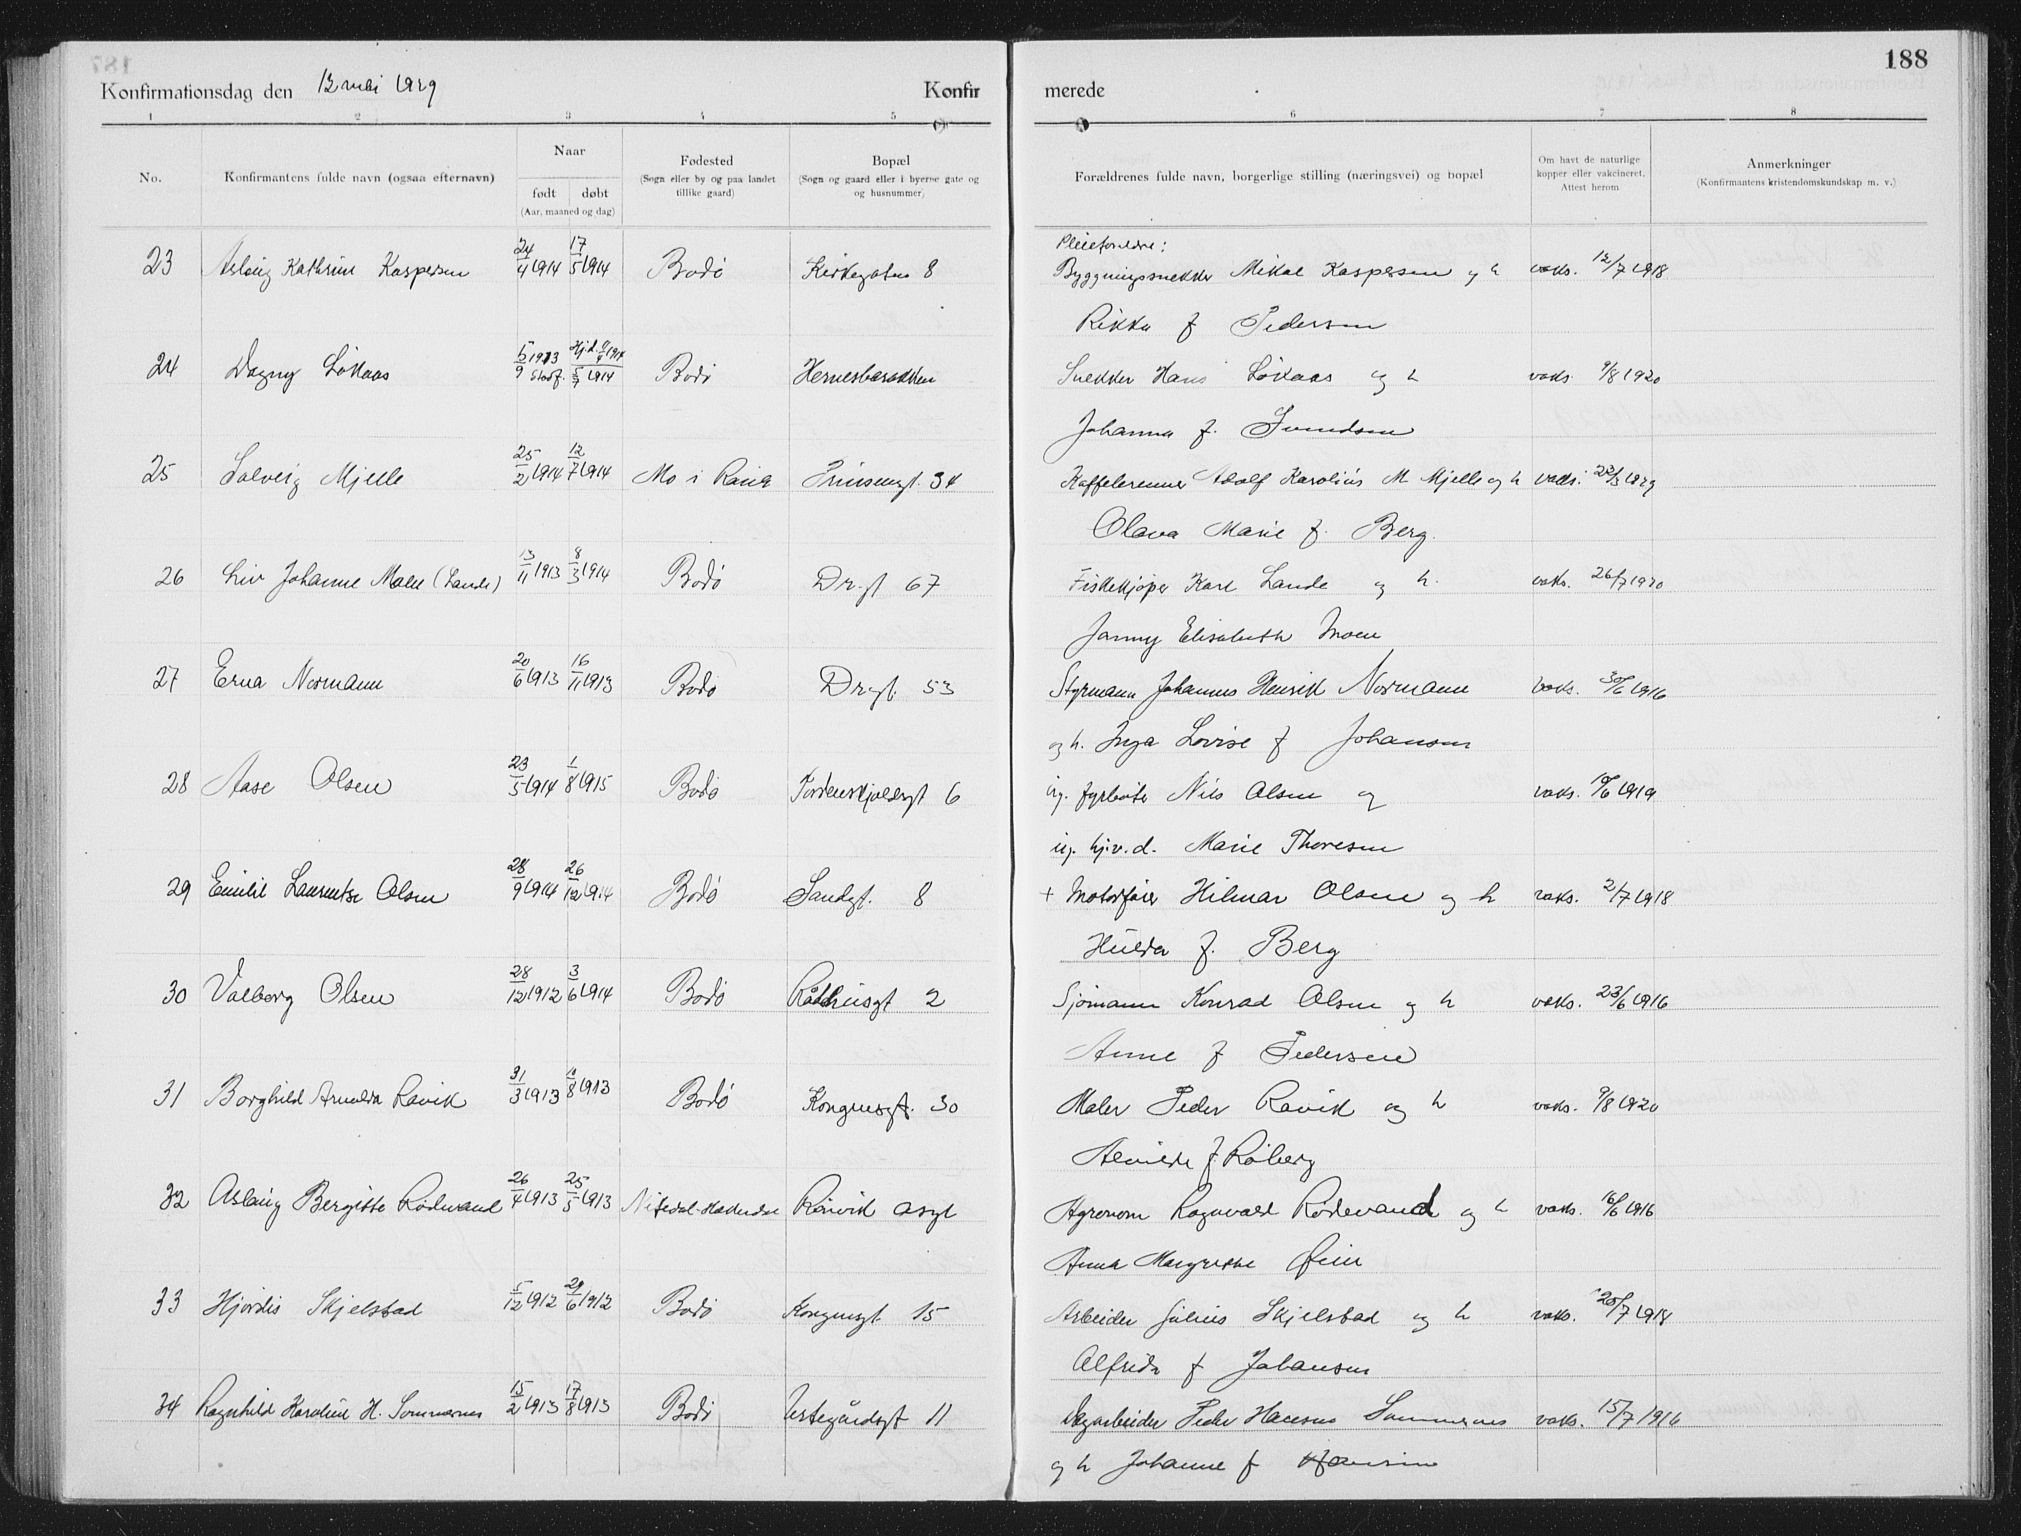 188
Konfirmationsdag den 12 mai 1929 Konfirmerede
1 2 3 4 5 6 7 8
No. Konfirmantens fulde navn (ogsaa efternavn) Naar født døbt (Aar, maaned og dag) Fødested (Sogn eller by og paa landet tillike gaard) Bopæl (Sogn og gaard eller i byerne gate og og husnummer) Forældrenes fulde navn, borgerlige stilling (næringsvei) og bopæl Om havt de naturlige kopper eller vakcineret. Attest herom Anmerkninger (Konfirmantens kristendomskundskap m. v.)
Pleieforeldre:
23 Aslaug Kathrine Kaspersen 24/4 1914 17/5 1914 Bodø Kirkegaten 8 Bygningssnekker Mikal Kaspersen og h vaks. 12/7 1918
Rikka f Pedersen
24 Dagny Løkaas 5/9 1913 Hj.d. 1914 Bodø Hernesbarakken Snekker Hans Løkaas og h vaks 9/8 1920
Johanna f. Svendsen
25 Solveig Mjelle 25/2 1914 12/7 1914 Mo i Rana Prinsensgt. 34 Kaffebrenner Adolf Karolius M Mjelle og h vaks. 22/3 1929
Olava Marie f. Berg.
26 Liv Johanne Moen (Lande) 13/11 1913 8/3 1914 Bodø Dr.gt 67 Fiskekjøper Karl Lande og h. vaks. 26/7 1920
Janny Elisabeth Moen
27 Erna Normann 20/6 1913 16/11 1913 Bodø Dr.gt. 53 Styrmann Johannes Henrik Normann vaks. 30/6 1916
og h. Inga Lovise f Johansen
28 Aase Olsen 23/5 1914 1/8 1915 Bodø Tordenskjoldsgt 6 ug. fyrbøter Nils Olsen og vaks. 19/6 1919
ug. hj.v.d. Marie Thoresen
29 Emilie Lauentse Olsen 28/9 1914 26/12 1914 Bodø Sandgt. 8 + Motorfører Hilmar Olsen og h vaks. 2/7 1918
Hulda f. Berg
30 Valborg Olsen 28/12 1912 3/6 1914 Bodø Rådhusgt 2 Sjømann Konrad Olsen og h vaks. 23/6 1916
Anne f Pedersen
31 Borghild Arnolda Ravik 31/3 1913 1/8 1913 Bodø Kongensgt. 30 Maler Peder Ravik og h vaks. 9/8 1920
Almilda f. Røberg
32 Aslaug Bergitte Rødevand 26/4 1913 25/5 1913 Nitedal-Hakedal Rønvik asyl Agronom Ragnvald Rødevand og h vaks. 16/6 1916
Anna Margrethe Øien
33 Hjørdis Skjelstad 5/12 1912 29/6 1912 Bodø Kongensgt. 15 Arbeider Julius Skjelstad og h vaks. 20/7 1918
Alfrida f Johansen
34 Ragnhild Karoline H. Sommernes 15/2 1913 17/8 1913 Bodø Vestegårdsgt 11 Dagarbeider Peder Hansens Sommernes vaks. 15/7 1916
og h Johanne f